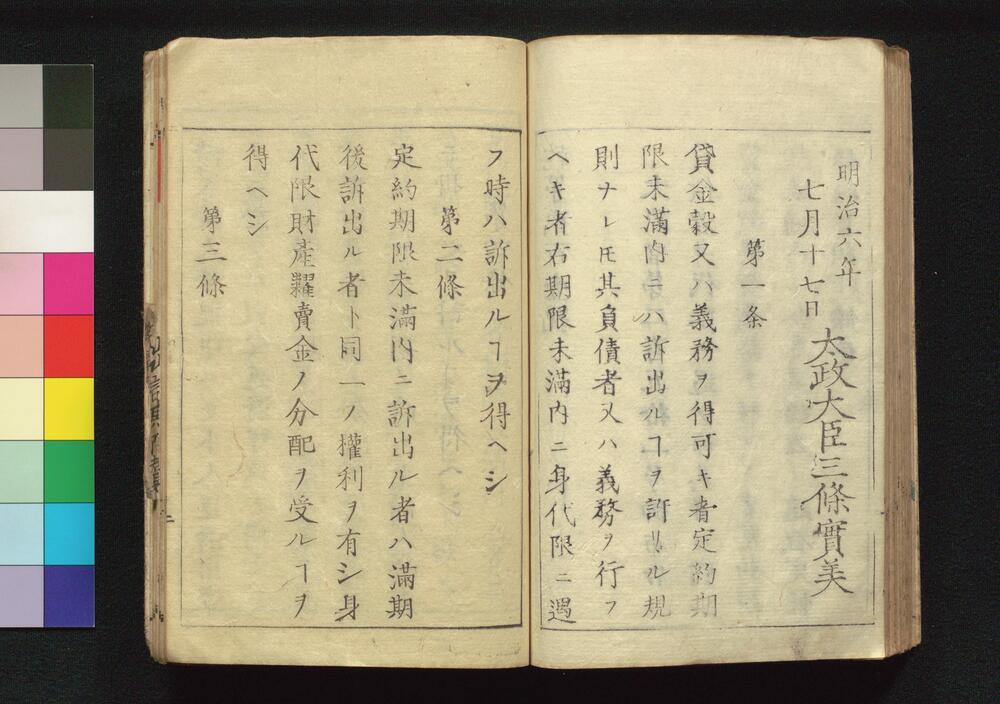 明治六年
七月十七日
太政大臣三條實美
第一条
貸金穀又ハ義務ヲ得可キ者定約期
限未滿内ニハ訴出ルヿヲ許サル規
則ナレ𪜈其負債者又ハ義務ヲ行フ
ヘキ者右期限未滿内ニ身代限ニ遇
フ時ハ訴出ルヿヲ得ヘシ
第二條
定約期限未滿内ニ訴出ル者ハ滿期
後訴出ル者ト同一ノ權利ヲ有シ身
代限財産糶賣金ノ分配ヲ受ルヿヲ
得ヘシ
第三條